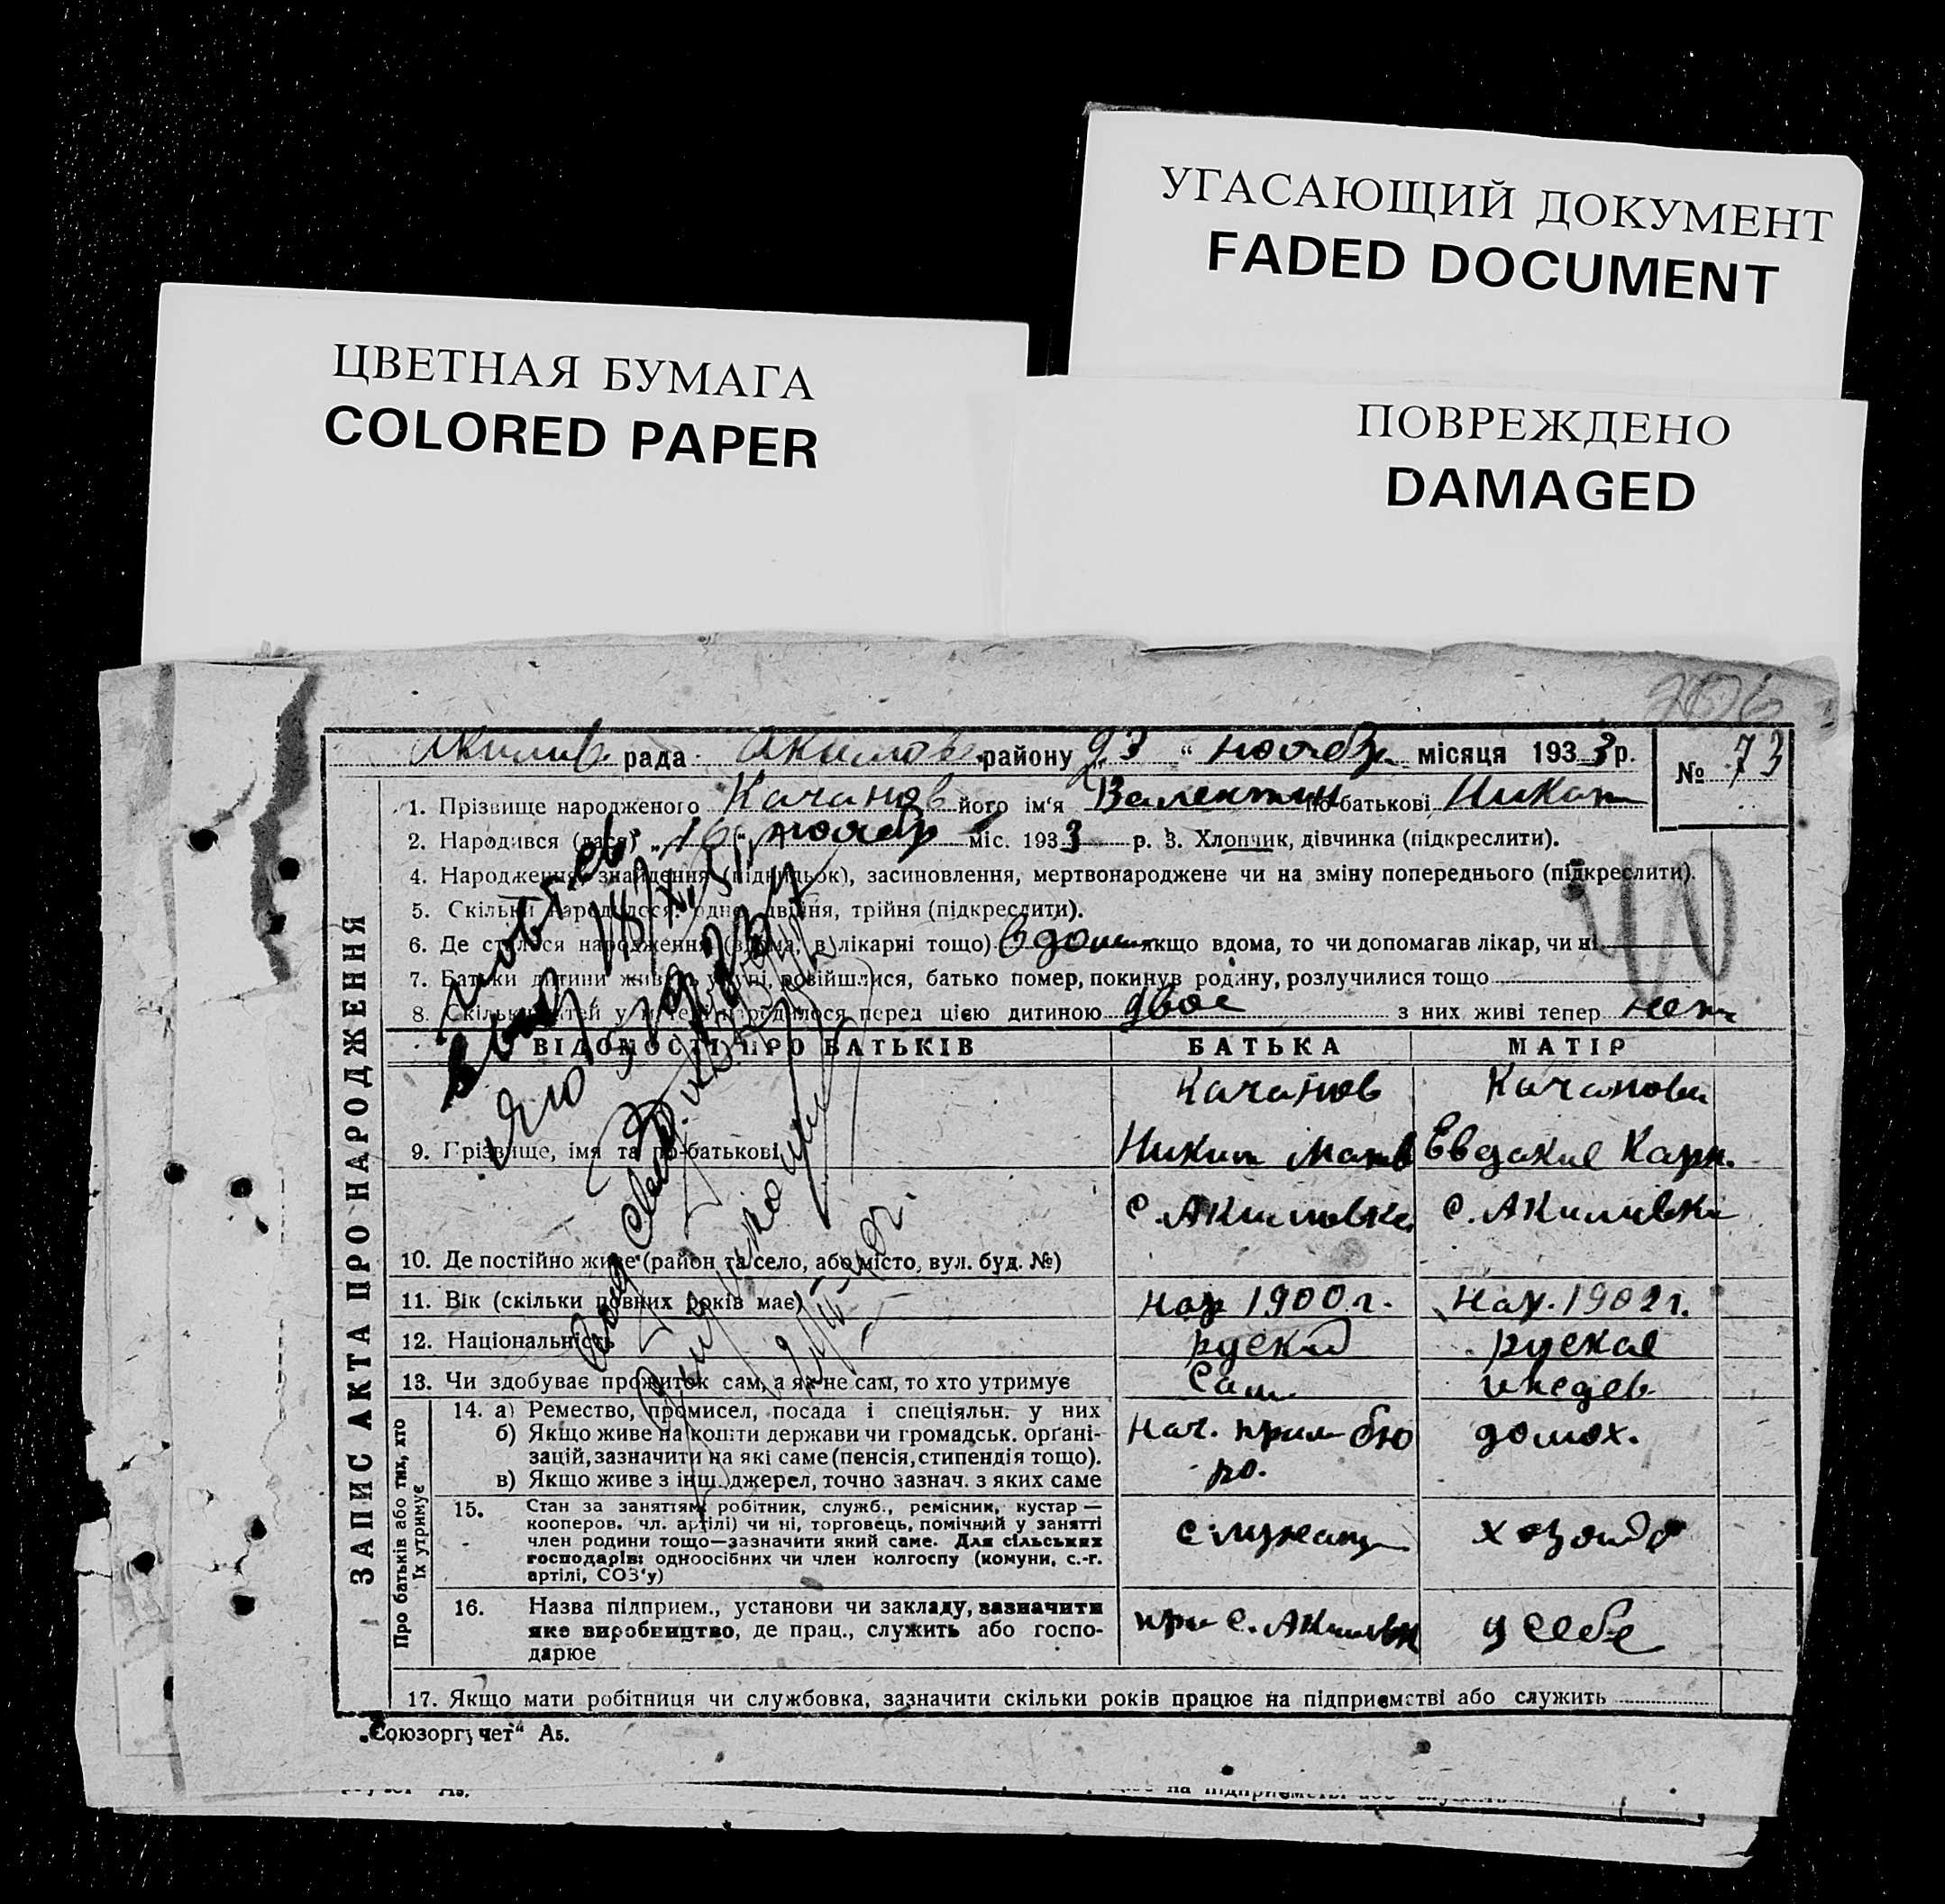 УГАСАЮЩИЙ ДОКУМЕНТ
FADED DOCUMENT
ЦВЕТНАЯ БУМАГА
COLORED PAPER
ПОВРЕЖДЕНО
DAMAGED
Акимов. рада Акимов. району „23“ ноябр. місяця 1933 р. № 73
ЗАПИС АКТА ПРО НАРОДЖЕННЯ
1. Прізвище народженого Качанов його ім'я Валентин по-батькові Никит
2. Народився (лася) „16“ ноябр міс. 1933 р. 3. Хлопчик, дівчинка (підкреслити).
4. Народження, знайдення (підкидьок), засиновлення, мертвонароджене чи на зміну попереднього (підкреслити).
40
5. Скільки народилося: одне, двійня, трійня (підкреслити).
6. Де сталося народження (вдома, в лікарні тощо) в доме якщо вдома, то чи допомагав лікар, чи ні
7. Батьки дитини живуть у купі, розійшлися, батько помер, покинув родину, розлучилися тощо
8. Скільки дітей у матері народилося перед цією дитиною двое з них живі тепер нет
ВІДОМОСТІ ПРО БАТЬКІВ БАТЬКА МАТІР
Качанов Качанова
9. Прізвище, імя та по-батькові Никит Матв Евдокия Карп.
с. Акимовка с. Акимовка
10. Де постійно живе (район та село, або місто, вул. буд. №)
11. Вік (скільки повних років має) 1900 г. 1902 г.
12. Національність руский руская
13. Чи здобуває прожиток сам, а як не сам, то хто утримує Сам иждев
Про батьків або тих, хто їх утримує
14. а) Ремество, промисел, посада і спеціяльн. у них нач. домох.
б) Якщо живе на кошти держави чи громадськ. органі-
зацій, зазначити на які саме (пенсія, стипендія тощо).
в) Якщо живе з інш. джерел, точно зазнач. з яких саме
15. Стан за заняттям: робітник, служб., ремісник, кустар —
кооперов. чл. артілі) чи ні, торговець, помічний у занятті
член родини тощо—зазначити який саме. Для сільських
господарів: одноосібних чи член колгоспу (комуни, с.-г.
артілі, СОЗ'у)
служащ
16. Назва підприєм., установи чи закладу, зазначити
яке виробництво, де прац., служить або госпо-
дарює
при с. Акимовк у себе
17. Якщо мати робітниця чи службовка, зазначити скільки років працює на підприємстві або служить
„Союзоргучет“ Аз.